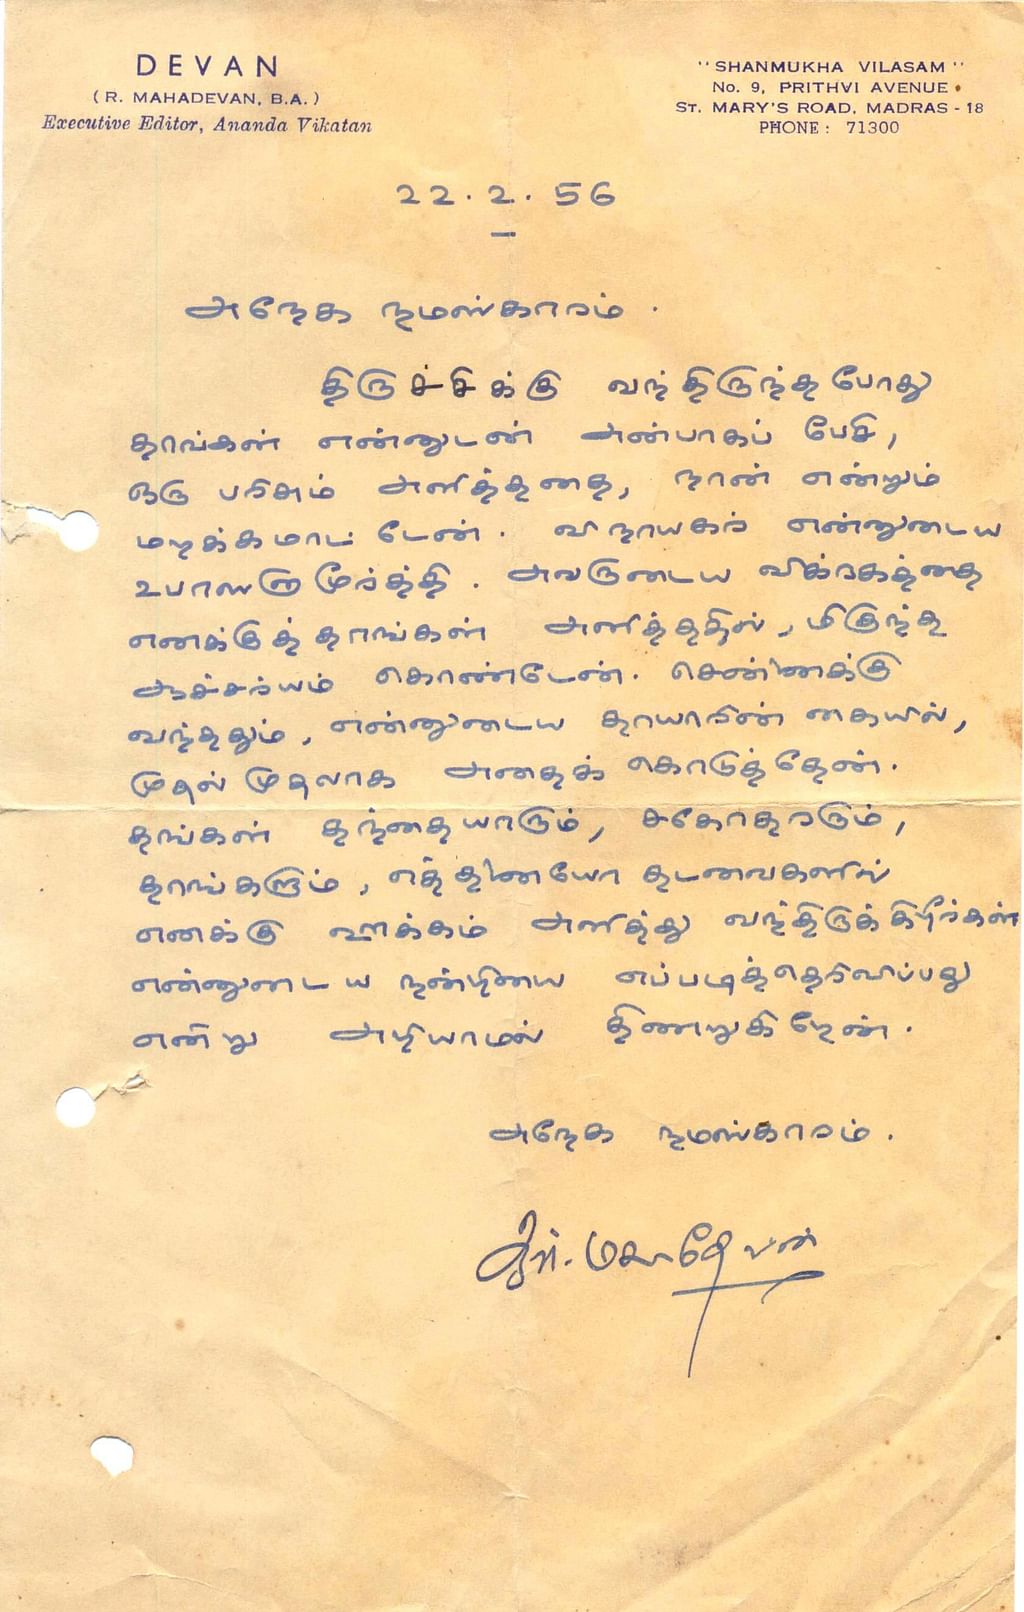 DEVAN
(R. MAHADEVAN, B.A.)
Executive Editor, Ananda Vikatan
"SHANMUKHA VILASAM"
No. 9, PRITHVI AVENUE
ST. MARY'S ROAD, MADRAS - 18
PHONE : 71300
22.2.56
அநேக நமஸ்காரம்.
திருச்சிக்கு வந்திருந்தபோது
தாங்கள் என்னுடன் அன்பாகப் பேசி,
ஒரு பரிசும் அளித்ததை, நான் என்றும்
மறக்கமாட்டேன். விநாயகர் என்னுடைய
உபாஸனாமூர்த்தி. அவருடைய விக்ரகத்தை
எனக்குத் தாங்கள் அளித்ததில், மிகுந்த
ஆச்சர்யம் கொண்டேன். சென்னைக்கு
வந்ததும், என்னுடைய தாயாரின் கையில்,
முதல் முதலாக அதைக் கொடுத்தேன்.
தங்கள் தந்தையாரும், சகோதரரும்,
தாங்களும், எத்தனையோ தடவைகளில்
எனக்கு ஊக்கம் அளித்து வந்திருக்கிறீர்கள்
என்னுடைய நன்றியை எப்படித்தெரிவிப்பது
என்று அறியாமல் திணறுகிறேன்.
அநேக நமஸ்காரம்.
ஆர். மகாதேவன்